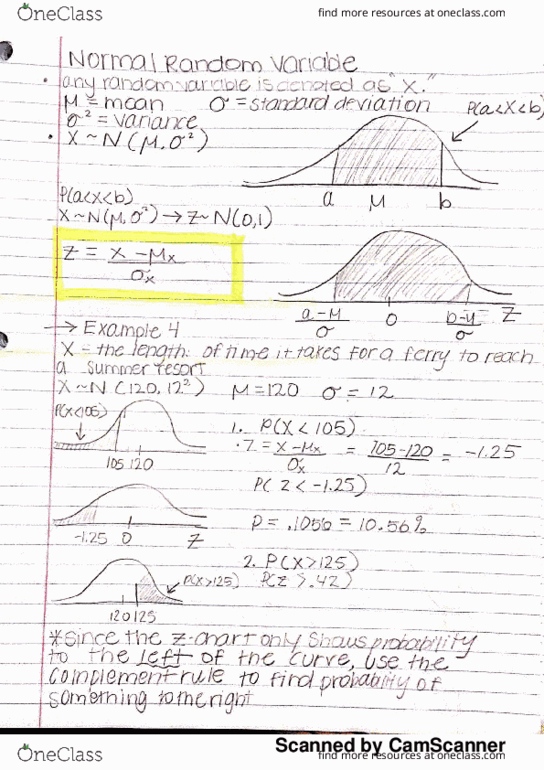 OneClass
find more resources at oneclass.com
Normal Random Variable
• any random variable is denoted as "X."
μ = mean σ = standard deviation
σ² = variance
P(a<X<b)
• X ~ N(μ, σ²)
a μ b
P(a<X<b)
X~N(μ, σ²) → Z~N(0,1)
Z = X - μx
σx
a-μ
σ
0
b-μ
σ
Z
→ Example 4
X = the length of time it takes for a ferry to reach
a summer resort
X ~ N (120, 12²) μ = 120 σ = 12
P(X<105)
105 120
1. P(X < 105)
• Z = X - μx = 105-120 = -1.25
σx 12
P( Z < -1.25)
-1.25 0 Z
P = .1056 = 10.56%
2. P(X>125)
P(X>125) P(Z > .42)
120 125
*Since the z-chart only shows probability
to the left of the curve, use the
complement rule to find probability of
something to the right
Scanned by CamScanner
OneClass
find more resources at oneclass.com